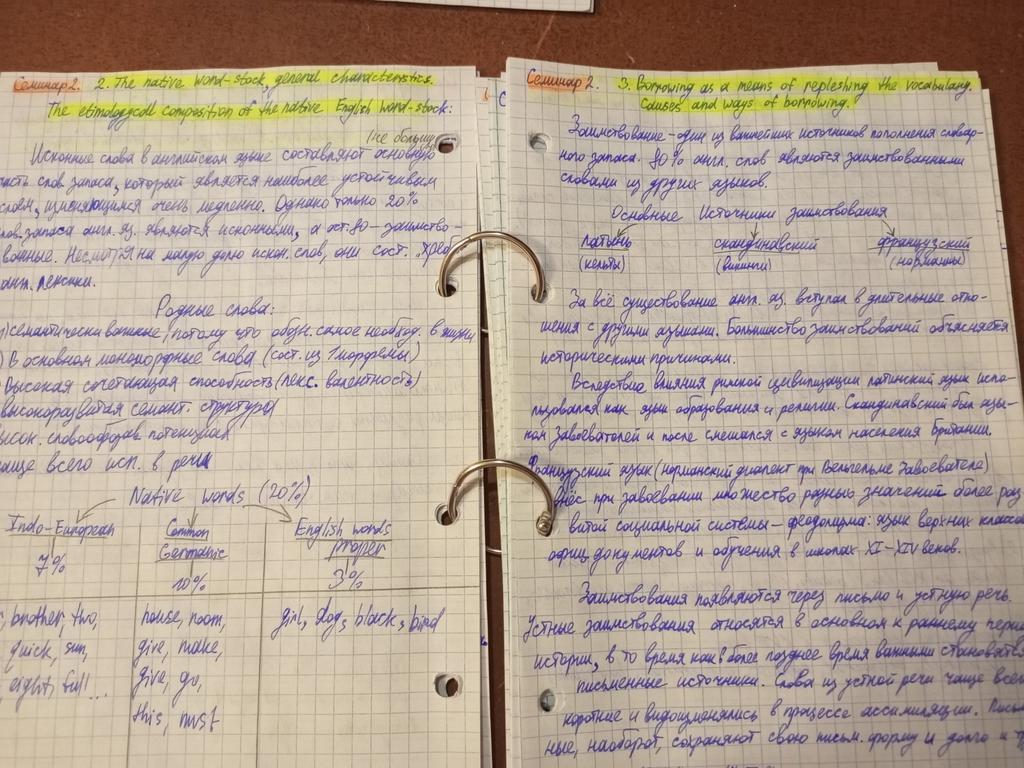 Семинар 2. 2. The native word-stock, general characteristics.
The etimologycall composition of the native English word-stock:
Исконные слова в английском языке составляют основную
часть слов. запаса, который является наиболее устойчивым
слоем, изменяющимся очень медленно. Однако только 20%
слов. запаса англ. яз. являются исконными, а ост. 80 - заимство-
ванные. Несмотря на малую долю искон. слов, они сост.
англ. лексики.
Родные слова:
семантически важные, потому что обозн. самое необход. в жизни
) В основном мономорфные слова (сост. из 1 морфемы)
Высокая сочетающая способность (лекс. валентность)
высокоразвитая семант. структура
высок. словообразов. потенциал
чаще всего исп. в речи
Native words (20%)
Indo-European
Common Germanic
English words proper
7%
10%
3%
brother, two,
quick, sun,
eight, full...
house, room,
give, make,
give, go,
this, must
girl, dog, black, bird
Семинар 2. 3. Borrowing as a means of repleshing the vocabulary.
Causes and ways of borrowing.
Заимствование - один из важнейших источников пополнения словар-
ного запаса. 80% англ. слов являются заимствованными
словами из других языков.
Основные Источники заимствования
латынь скандинавский французский
(кельты) (викинги) (норманны)
За всё существование англ. яз. вступал в длительные отно-
шения с другими языками. Большинство заимствований объясняется
историческими причинами.
Вследствие влияния римской цевилизации латинский язык испо-
льзовался как язык образования и религии. Скандинавский был язы-
ком Завоевателей и после смешался с языком населения Британии.
Французский язык (норманский диалект при Вельгельме Завоевателе)
внёс при завоевании множество разных значений более раз
витой социальной системы - феодализма: язык верхних классо
офиц. документов и обучения в школах XI-XIV веков.
Заимствования появляются через письмо и устную речь.
Устные заимствования относятся в основном к раннему пери
истории, в то время как в более позднее время важными становятся
письменные источники. Слова из устной речи чаще всег
короткие и видоизменялись в процессе ассимиляции. Письм
ные, наоборот, сохраняют свою письм. форму и долго и